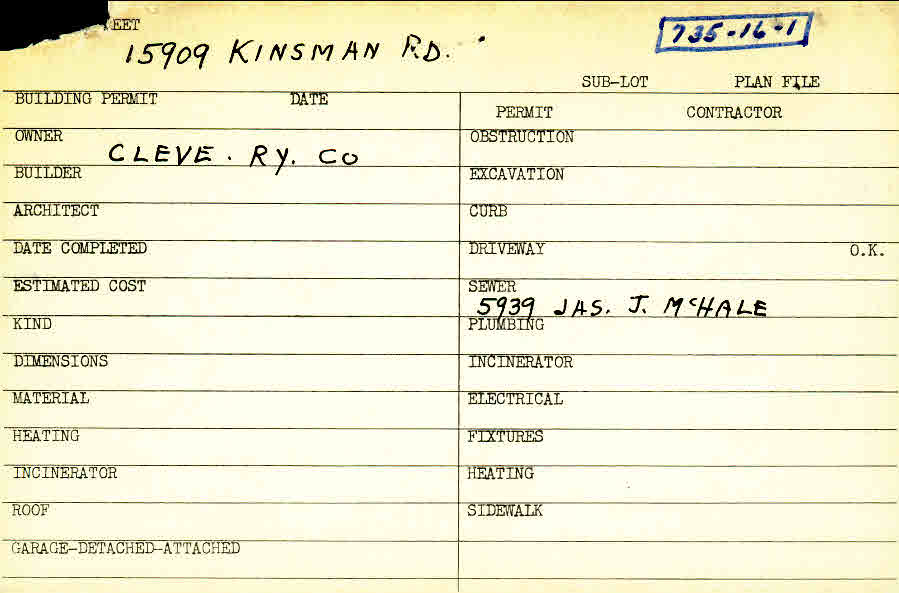 EET
15909 KINSMAN RD.
735-16-1
SUB-LOT PLAN FILE
BUILDING PERMIT DATE
PERMIT CONTRACTOR
OWNER
CLEVE. RY. CO
OBSTRUCTION
BUILDER
EXCAVATION
ARCHITECT
CURB
DATE COMPLETED
DRIVEWAY O.K.
ESTIMATED COST
SEWER
5939 JAS. J. McHALE
KIND
PLUMBING
DIMENSIONS
INCINERATOR
MATERIAL
ELECTRICAL
HEATING
FIXTURES
INCINERATOR
HEATING
ROOF
SIDEWALK
GARAGE-DETACHED-ATTACHED